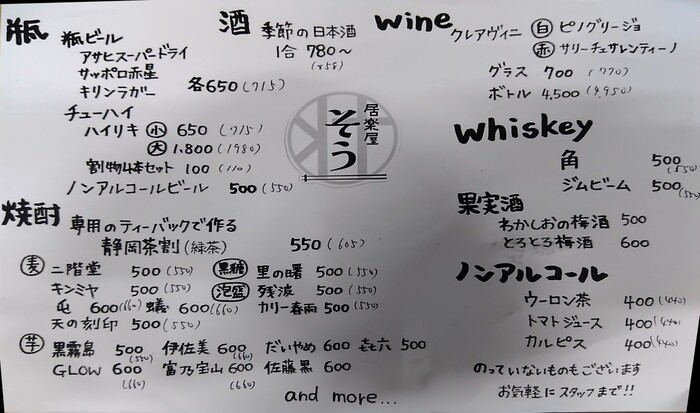 瓶
瓶ビール
アサヒスーパードライ
サッポロ赤星
キリンラガー 各650(715)
チューハイ
ハイリキ 小 650 (715)
大 1.800 (1980)
割物4本セット 100 (110)
ノンアルコールビール 500 (550)
酒 季節の日本酒
1合 780〜
(858)
居楽屋
そう
wine クレアヴィニ 白 ピノグリージョ
赤 サリーチェサレンティーノ
グラス 700 (770)
ボトル 4,500 (4,950)
Whiskey
角 500 (550)
ジムビーム 500 (550)
果実酒
わかしおの梅酒 500
とろとろ梅酒 600
ノンアルコール
ウーロン茶 400 (440)
トマトジュース 400 (440)
カルピス 400 (440)
のっていないものもございます
お気軽にスタッフまで!!
焼酎 専用のティーバックで作る
静岡茶割(緑茶) 550 (605)
麦 二階堂 500 (550) 黒糖 里の曙 500 (550)
キンミヤ 500 (550) 泡盛 残波 500 (550)
屯 600 (660) 蟻 600 (660) カリー春雨 500 (550)
天の刻印 500 (550)
芋 黒霧島 500 (550) 伊佐美 600 (660) だいやめ 600 㐂六 500
GLOW 600 (660) 富乃宝山 600 (660) 佐藤黒 600
and more...